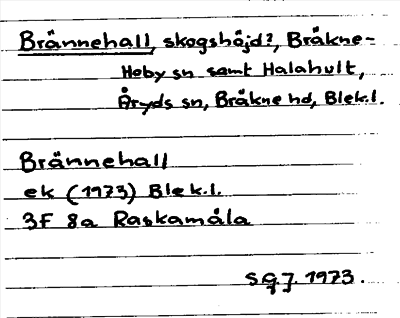 Brännehall, skogshöjd?, Bräkne-
Hoby sn samt Halahult,
Åryds sn, Bräkne hd, Blek.l.
Brännehall
ek (1973) Blek.l.
3F 8a Raskamåla
1973.